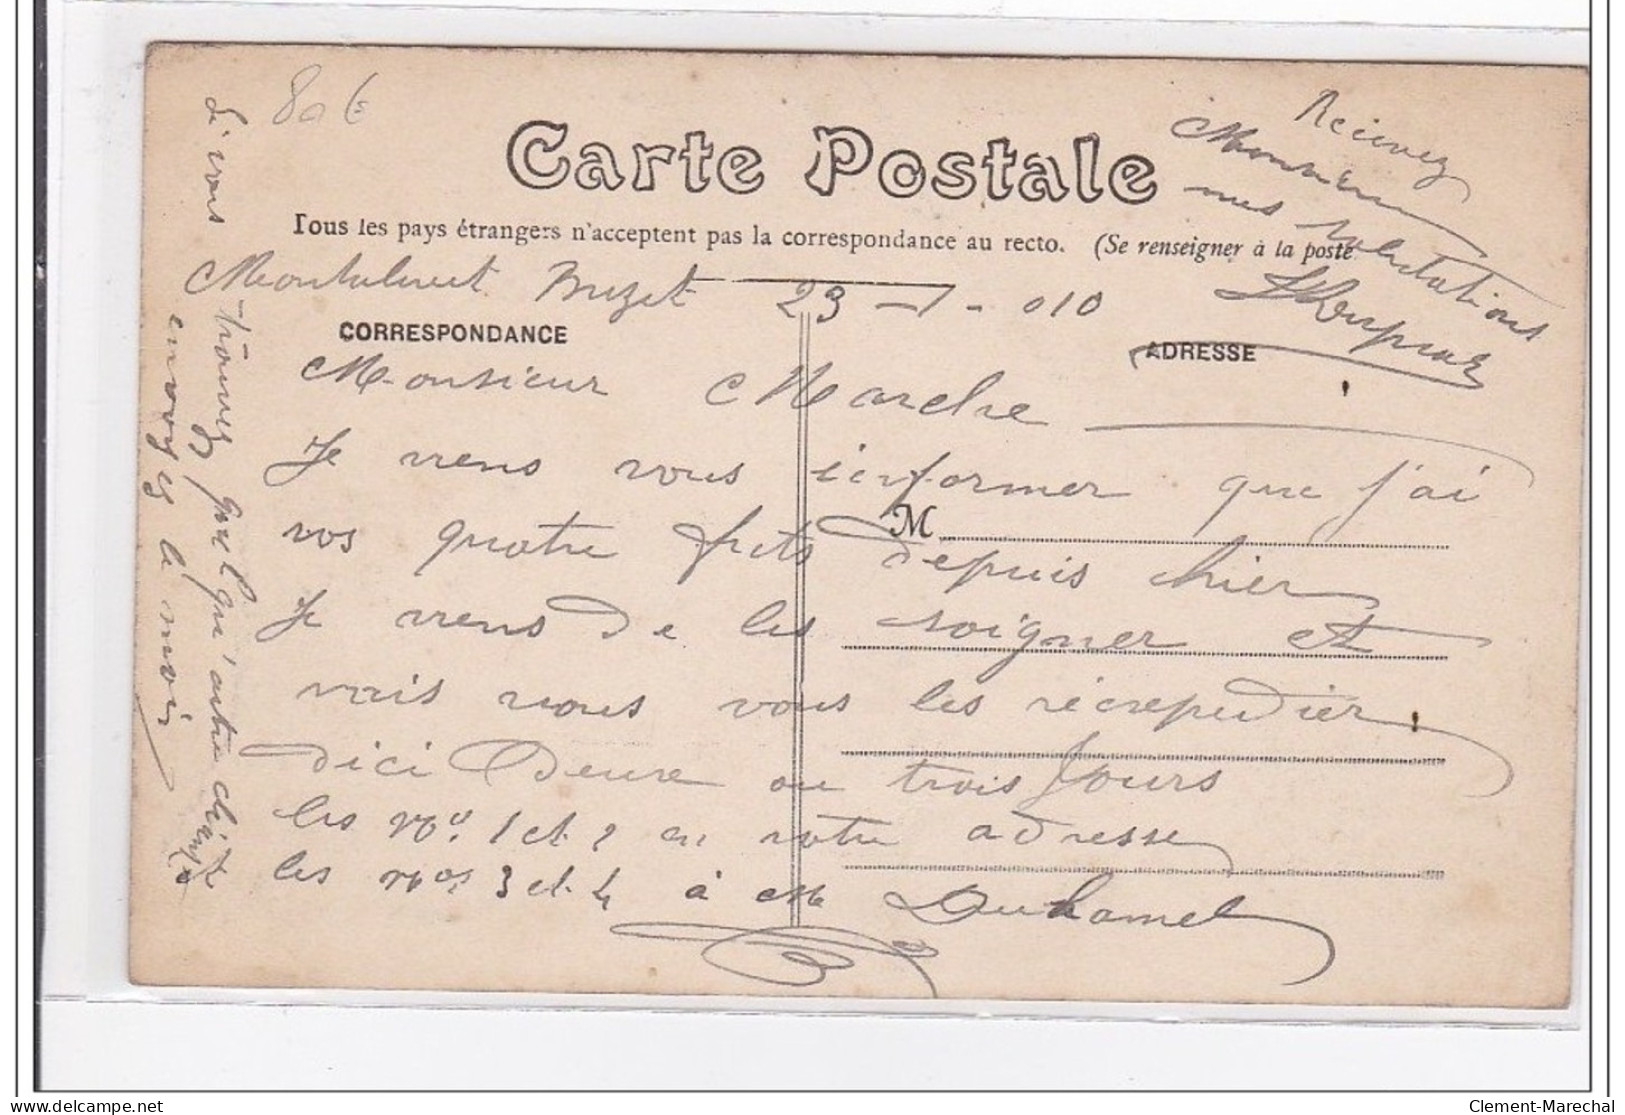 80 €
Carte Postale
Tous les pays étrangers n'acceptent pas la correspondance au recto. (Se renseigner à la poste
23 - 1 - 010
CORRESPONDANCE
ADRESSE
Monsieur Marche
Je viens vous informer que j'ai
M
vos quatre futs depuis hier
Je viens de les soigner et
vais vous les
dici Deux ou trois Jours
les Nos 1 et 2 en votre adresse
les nos 3 et 4 à M Duhamel
Si vous trouvez quelqu'autre
envoyez le moi
Recevez
Monsieur
mes salutations
delcampe.net
Clement-Marechal